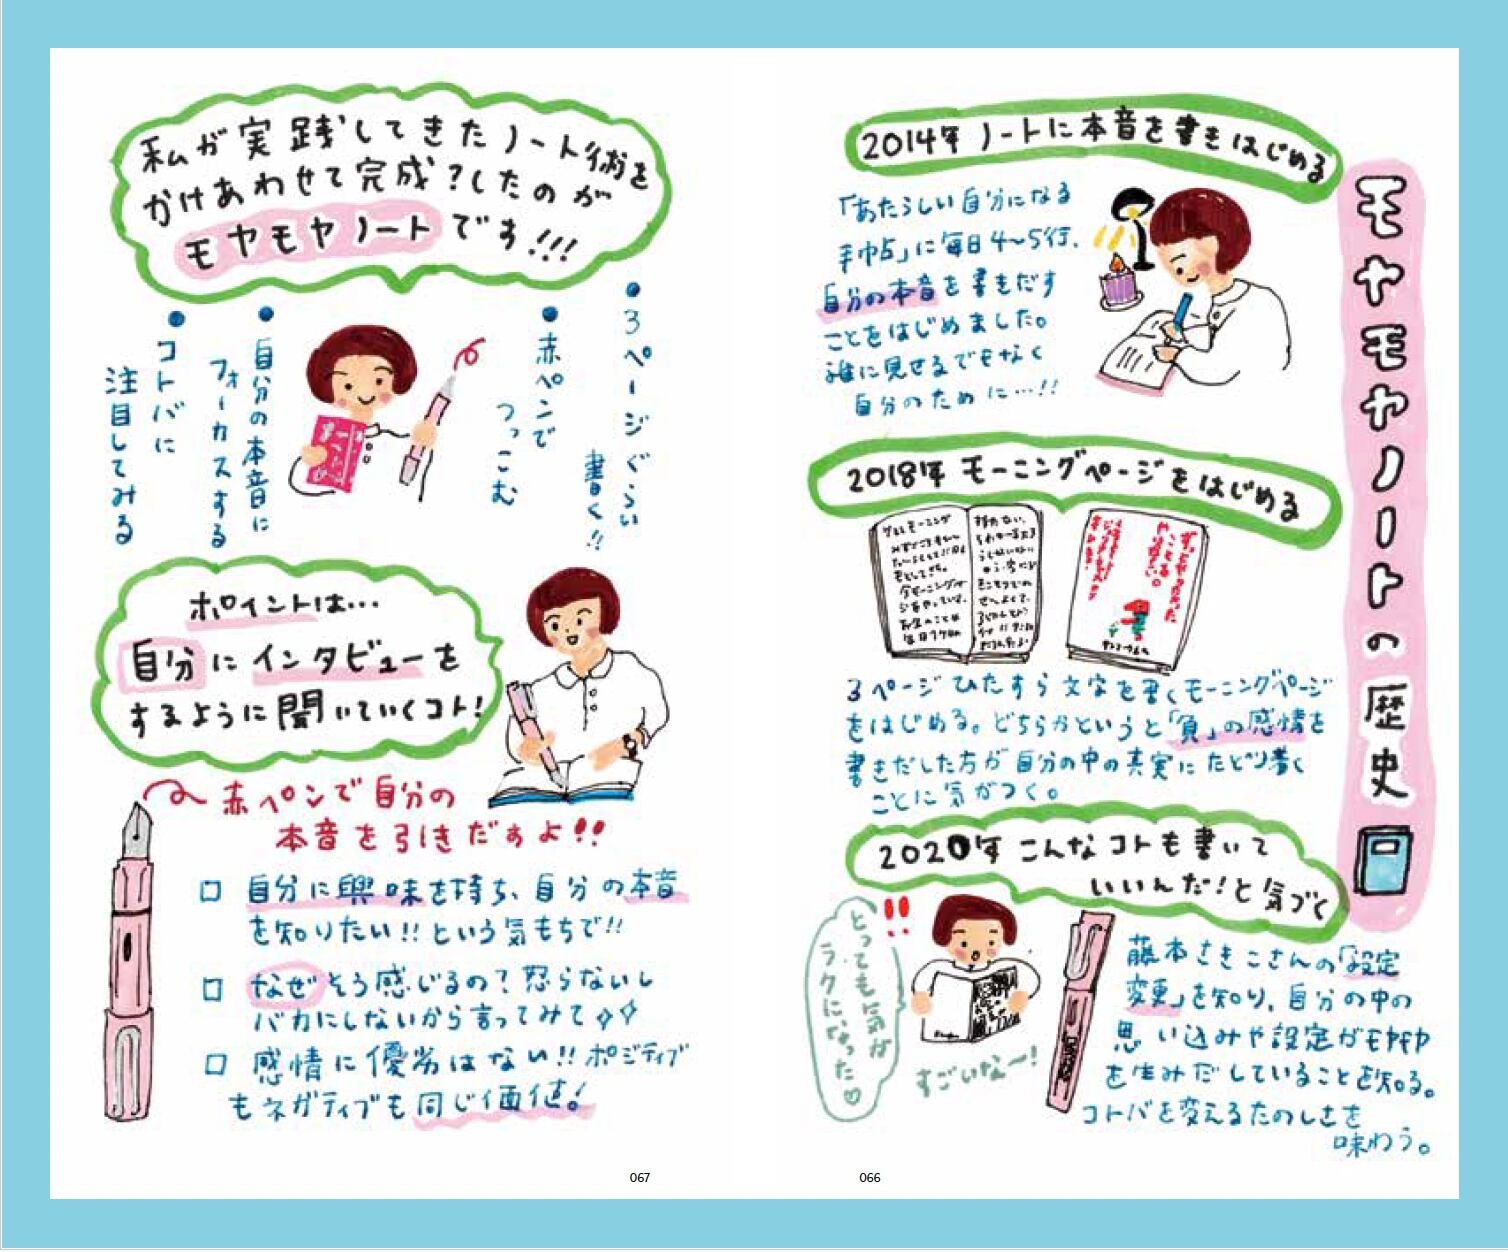 モヤモヤノートの歴史
2014年 ノートに本音を書きはじめる
「あたらしい自分になる
手帖」に毎日4〜5行、
自分の本音を書きだす
ことをはじめました。
誰に見せるでもなく
自分のために…!!
2018年 モーニングページをはじめる
3ページひたすら文字を書くモーニングページ
をはじめる。どちらかというと「負」の感情を
書きだした方が自分の中の真実にたどり着く
ことに気がつく。
2020年 こんなコトも書いて
いいんだ!と気づく
とっても気が
ラクになった♡
!!
すごいな〜!
藤本さきこさんの「設定
変更」を知り、自分の中の
思い込みや設定がモヤモヤ
を生みだしていることを知る。
コトバを変えるたのしさを
味わう。
066
私が実践してきたノート術を
かけあわせて完成?したのが
モヤモヤノートです!!!
●3ページぐらい
書く!!
●赤ペンで
つっこむ
●自分の本音に
フォーカスする
●コトバに
注目してみる
ポイントは…
自分にインタビューを
するように聞いていくコト!
赤ペンで自分の
本音を引きだすよ!!
□ 自分に興味を持ち、自分の本音
を知りたい!!という気もちで!!
□ なぜそう感じるの?怒らないし
バカにしないから言ってみて
□ 感情に優劣はない!!ポジティブ
もネガティブも同じ価値!
067